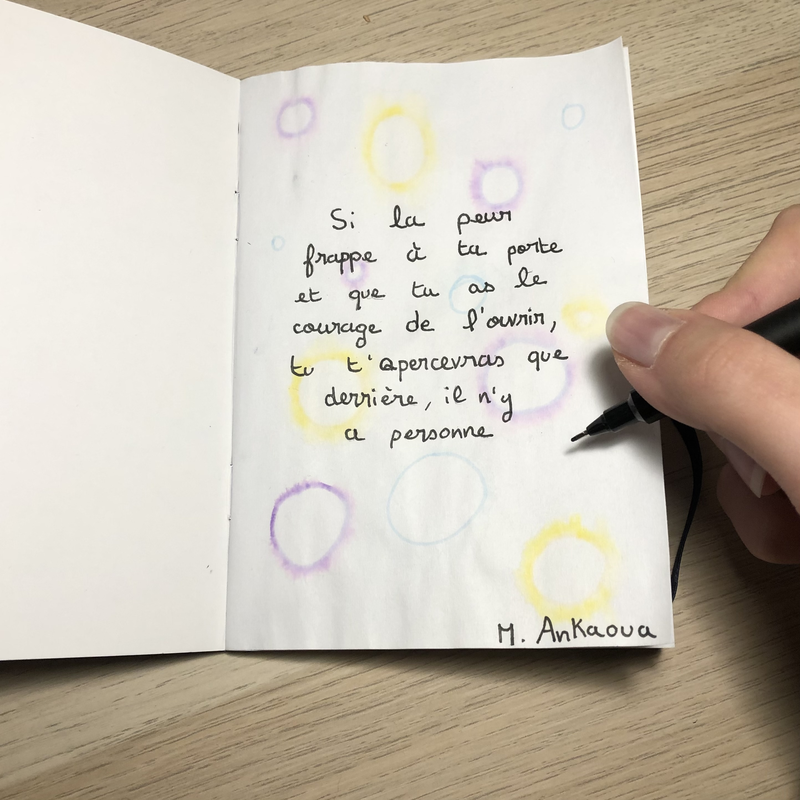 Si la peur
frappe à ta porte
et que tu as le
courage de l'ouvrir,
tu t'apercevras que
derrière, il n'y
a personne
M. Ankaoua